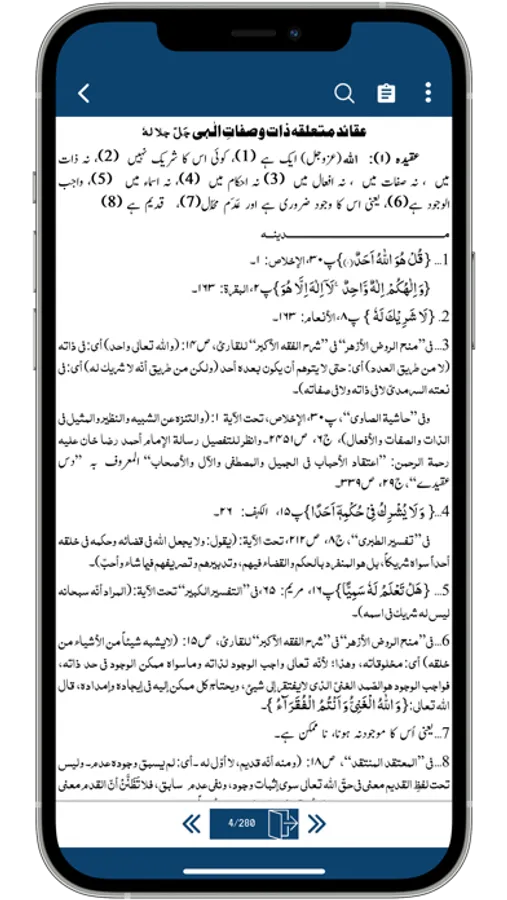 عقائد متعلقه ذات وصفاتِ الٰہی جَلَّ جلا لهٗ
عقیدہ (۱): اللہ (عزوجل) ایک ہے (1)، کوئی اس کا شریک نہیں (2)، نہ ذات
میں ، نہ صفات میں ، نہ افعال میں (3) نہ احکام میں (4)، نہ اسماء میں (5)، واجب
الوجود ہے(6)، یعنی اس کا وجود ضروری ہے اور عَدَم مُحَال(7)، قدیم ہے (8)
مـــــــــــدینـــه
1... {قُلْ هُوَ اللّٰهُ اَحَدٌ(۱)}پ۳۰، الإخلاص: ۱۔
{وَاِلٰهُكُمْ اِلٰهٌ وَّاحِدٌ ۚ لَاۤ اِلٰهَ اِلَّا هُوَ}پ۲، البقرة: ۱۶۳۔
2. {لَا شَرِیْكَ لَهٗ} پ۸، الأنعام: ۱۶۳۔
3...فی ’’منح الروض الأزهر‘‘ في ’’شرح الفقه الأكبر‘‘ للقاریٔ، ص۱۴: (والله تعالى واحد) أي: في ذاته
(لا من طريق العدد) أي: حتى لا يتوهم أن يكون بعده أحد (ولكن من طريق أنّه لا شريك له) أي: في
نعته السرمديّ لا في ذاته ولا في صفاته)۔
وفي ’’حاشية الصاوي‘‘، پ۳۰، الإخلاص، تحت الآية ۱: (والتنزه عن الشبيه والنظير والمثيل في
الذات والصفات والأفعال)، ج۶، ص۲۴۵۱۔ وانظر للتفصيل رسالة الإمام أحمد رضا خان عليه
رحمة الرحمن: ’’اعتقاد الأحباب في الجميل والمصطفى والآل والأصحاب‘‘ المعروف بہ ’’دس
عقیدے‘‘، ج۲۹، ص۳۳۹۔
4...{وَلَا یُشْرِكُ فِیْ حُكْمِهٖۤ اَحَدًا}پ۱۵، الکہف: ۲۶۔
في ’’تفسير الطبري‘‘، ج۸، ص۲۱۲، تحت الآية: (يقول: ولا يجعل الله في قضائه وحكمه في خلقه
أحداً سواه شريكاً، بل هو المنفرد بالحكم والقضاء فيهم، وتدبيرهم وتصريفهم فيما شاء وأحبّ)۔
5...{هَلْ تَعْلَمُ لَهٗ سَمِیًّا}پ۱۶، مریم: ۶۵، في ’’التفسير الكبير‘‘ تحت الآية: (المراد أنّه سبحانه
ليس له شريك في اسمه)۔
6...فی ’’منح الروض الأزهر‘‘ في ’’شرح الفقه الأكبر‘‘ للقاریٔ، ص۱۵: (لا يشبه شيئاً من الأشياء من
خلقه) أي: مخلوقاته، وهذا؛ لأنّه تعالى واجب الوجود لذاته وما سواه ممكن الوجود في حد ذاته،
فواجب الوجود هو الصمد الغنيّ الذي لا يفتقر إلى شيئ، ويحتاج كل ممكن إليه في إيجاده وإمداده، قال
الله تعالى: {وَاللّٰهُ الْغَنِیُّ وَاَنْتُمُ الْفُقَرَآءُ}۔
7...یعنی اُس کا موجود نہ ہونا، نا ممکن ہے۔
8...في ’’المعتقد المنتقد‘‘، ص۱۸: (ومنه أنّه قديم، لا أوّل له ۔ أي: لم يسبق وجوده عدم ۔ وليس
تحت لفظ القديم معنى في حقّ الله تعالى سوى إثبات وجود، ونفي عدم سابق، فلا تظنّنّ أنّ القدم معنى
4/280